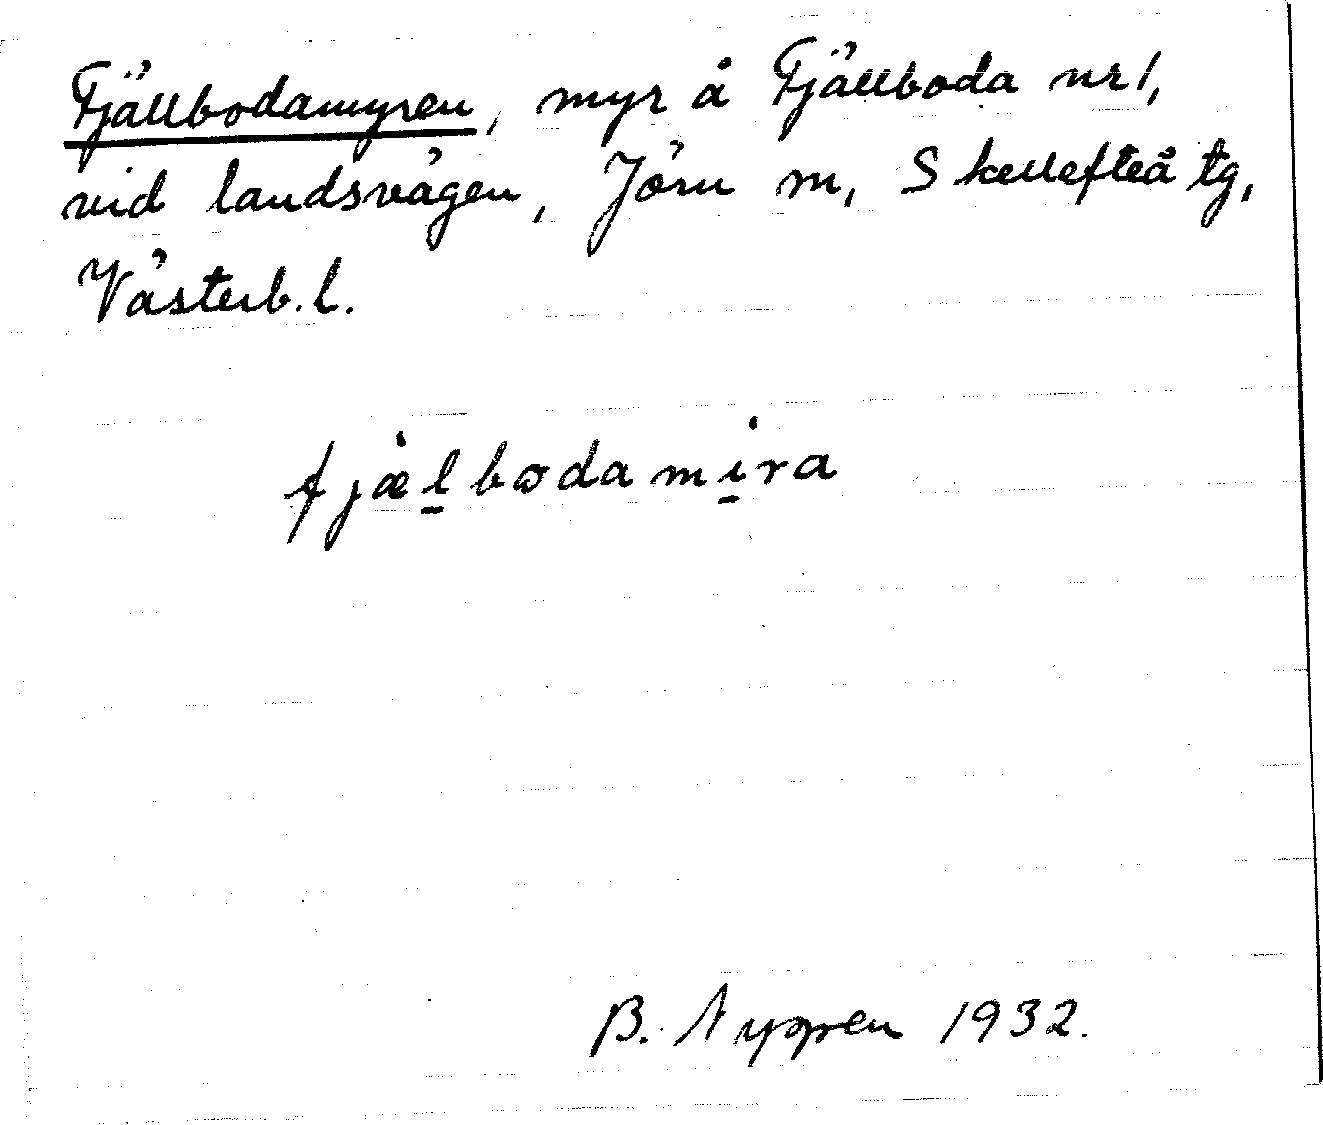 Fjällbodamyren, myr å Fjällboda nr 1,
vid landsvägen, Jörn sn, Skellefteå tg,
Västerb. l.
fjæ̀l̲bodami̲̇ra
B. Nygren 1932.